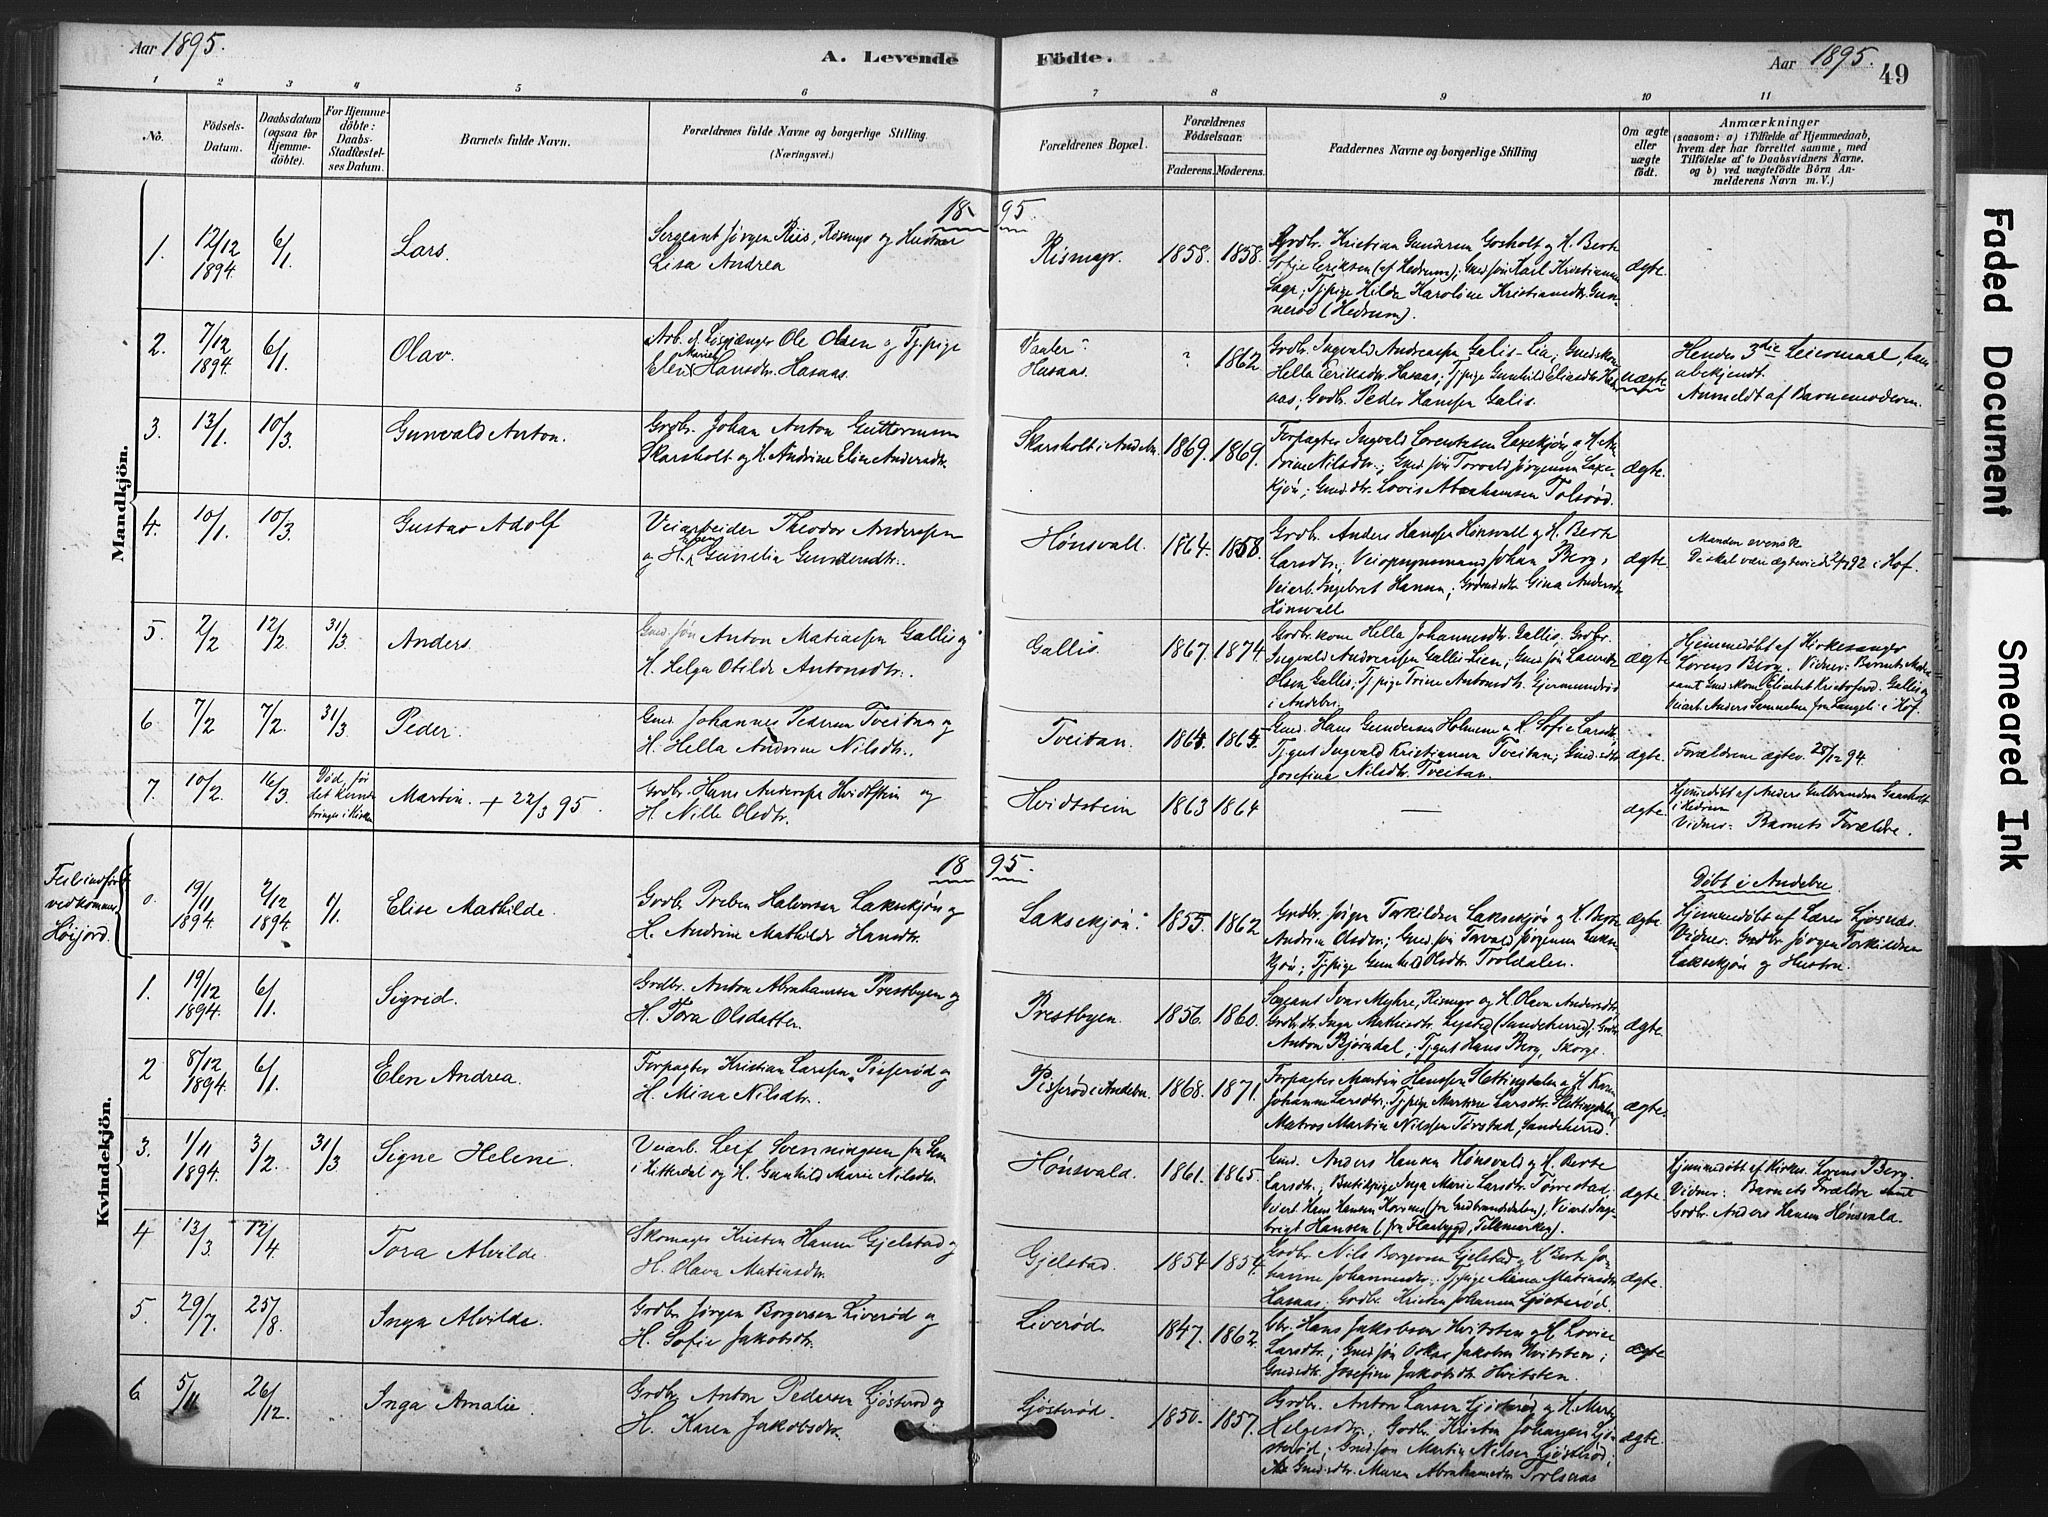 Aar 1895.
A. Levende Födte.
Aar 1895.
49
1 2 3 4 5 6 7 8 9 10 11
No.
Födsels-Datum.
Daabsdatum (ogsaa for Hjemmedöbte).
For Hjemmedöbte: Daabs-Stadfæstelses Datum.
Barnets fulde Navn.
Forældrenes fulde Navne og borgerlige Stilling (Næringsvei.)
Forældrenes Bopæl.
Forældrenes Födselsaar.
Faderens. Moderens.
Faddernes Navne og borgerlige Stilling
Om ægte eller uægte födt.
Anmærkninger
(saasom: a) i Tilfælde af Hjemmedaab,
hvem der har forrettet samme, med
Tilföielse af to Daabsvidners Navne.
og b) ved uægtefödte Börn Anmelderens Navn m. V.)
Mandkjön.
18 95
1. 12/12 1894. 6/1. Lars.
Sergeant Jørgen Riis, Rismyr og Hustru
Lisa Andrea
Rismyr. 1858. 1858.
Grdbr. Kristian Gundersen Gosholt og H. Berte
Sofie Eriksen (af Hedrum); Gmd.søn Karl Kristiansen
; Tj.pige Hilda Karoline Kristiansdtr. Gunnerød (Hedrum).
ægte.
2. 7/12 1894. 6/1. Olav.
Arb. og Løsgjænger Ole Olsen og Tj.pige
Elen Marie Hansdtr. Hasaas.
Hasaas. ? 1862.
Grdbr. Ingvald Andreassen Galis-Lia; Gmd.kone
Hella Eriksdtr. Hasaas; Tj.pige Gunhild Eliasdtr. Hasaas; Grdbr. Peder Hansen Galis.
uægte
Hendes 3die Leiermaal, han
ubekjendt.
Anmeldt af Barnemoderen.
3. 13/1. 10/3. Gunvald Anton.
Grdbr. Johan Anton Guttormsen
Skarsholt og H. Andrine Elise Andersdtr.
Skarsholt i Andebu. 1869. 1869.
Forpagter Ingvald Lorentzen Laxekjøn og H. Andrine Nilsdtr.; Gmd.søn Torvald Jørgensen Laxekjøn; Gmd.dtr. Lovise Abrahamsen Tolsrød.
ægte.
4. 10/1. 10/3. Gustav Adolf
Veiarbeider Theodor Anderssen
og H. Gunelia Gundersdtr.
Hønsvall. 1864. 1858.
Grdbr. Anders Hansen Hønsvall og H. Berte
Larsdtr.; Veiopsynsmand Johan Berg;
Veiarb. Ingebret Hansen; Grdmd.dtr. Gina Andersdtr.
Hønsvall
ægte.
Manden svensk
De skal være ægteviede 2/4 92 i Hof.
5. 2/2 12/2. 31/3 Anders.
Gmd.søn Anton Matiassen Gallis og
H. Helga Otilde Antonsdtr.
Gallis. 1867. 1874.
Grdbr.kone Hella Johannesdtr. Gallis. Grdbr.
Ingvald Andreassen Gallis-Lien; Gmd.søn Laurits
Olsen Gallis; Tj.pige Trine Antonsdtr. Gjermundrød
i Andebu.
ægte
Hjemmedøbt af Kirkesanger
Lorens Berg. Vidner: Barnets Moder
samt Gmd.kone Elisabet Kristofersd. Gallis og
Veiarb. Anders Samuelsen fra Langeli i Hof.
6. 7/2 7/2. 31/3 Peder.
Gmd. Johannes Pedersen Tveitan og
H. Hella Andrine Nilsdtr.
Tveitan. 1864. 1865.
Gmd. Hans Gundersen Holmene og H. Sofie Larsdtr.
Tj.gut Ingvald Kristiansen Tveitan; Gmd.dtr.
Josefine Nilsdtr. Tveitan.
ægte.
Forældrene ægtev. 28/12 94.
7. 10/2. 16/3. Død, før det kunde bringes i Kirken
Martin. + 22/3 95.
Grdbr. Hans Anderssen Hvidtstein og
H. Nille Olsdtr.
Hvidtstein 1863 1864 —
ægte.
Hjemmedøbt af Anders Gulbrandsen Gaasholt
i Hedrum
Vidner: Barnets Forældre.
Kvindekjön.
Feilindført vedkommer Höijord.
18 95.
0. 19/11 1894 2/12 1894. 1/1. Elise Mathilde.
Grdbr. Preben Halvorsen Laksekjøn og
H. Andrine Mathilde Hansdtr.
Laksekjøn. 1855. 1862
Grdbr. Jørgen Torkildsen Laksekjøn og H. Berte
Andrine Olsdtr; Gmd.søn Torvald Jørgensen Laksekjøn; Tj.pige Gunhild Olsdtr. Troldalen.
ægte.
Døbt i Andebu.
Hjemmedøbt af Lærer Ljosnæs.
Vidner: Grdbr. Jørgen Torkildsen
Laksekjøn og Hustru.
1. 19/12 1894. 6/1. Sigrid.
Grdbr. Anton Abrahamsen Prestbyen og
H. Tora Olsdatter
Prestbyen. 1856. 1860.
Sergeant Ivar Myhre, Rismyr og H. Olava Andersdtr.
Grdbr.dtr. Inga Mathisdtr. Lysted (Sandeherred); Grdbr.
Anton Bjørndal; Tj.gut Hans Berg, Skorge.
ægte.
2 8/12 1894. 6/1. Elen Andrea.
Forpagter Kristian Larssen Pisserød og
H. Mina Nilsdtr.
Pisserød i Andebu. 1868. 1871.
Forpagter Martin Hanssen Slettingdalen og H. Karen
Johanne Larsdtr.; Tj.pige Martine Larsdtr. Slettingdalen;
Matros Martin Nilssen Torstad, Sandeherred.
ægte.
3. 1/11 1894. 3/2. 31/3 Signe Helene.
Veiarb. Leif Svenningsen fra Lien
i Hitterdal og H. Gunhild Marie Nilsdtr.
Hønsvald. 1861. 1865.
Gmd. Anders Hansen Hønsvald og H. Berte
Larsdtr.; Butikpige Inga Marie Larsdtr. Torrestad.
Veiarb. Hans Hansen (fra Gudbrandsdalen), Veiarb. Ingebrigt Hansen (fra Flaabygd, Telemarken).
ægte.
Hjemmedøbt af Kirkes. Lorens Berg.
Vidner: Barnets Forældre samt
Grdbr. Anders Hansen Hønsvald.
4 13/3. 12/4. Tora Alvilde.
Skomager Kristen Hansen Gjelstad og
H. Olava Matiasdtr.
Gjelstad. 1854. 1854.
Grdbr. Nils Borgersen Gjelstad og H. Berte Johanne Johannesdtr.; Tj.pige Mina Matiasdtr.
Hasaas; Grdbr. Kristen Johansen Ljøsterød.
ægte.
5. 29/7. 25/8. Inga Alvilde.
Grdbr. Jørgen Borgersen Liverød og
H. Sofie Jakobsdtr.
Liverød. 1847. 1862.
Gbr. Hans Jakobsen Hvitsten og H. Lovise
Larsdtr.; Gmd.søn Oskar Jakobsen Hvitsten;
Gmd.dtr. Josefine Jakobsdtr. Hvitsten.
ægte
6. 5/11 26/12. Inga Amalie.
Grdbr. Anton Pedersen Ljøsterød og
H. Karen Jakobsdtr.
Ljøsterød. 1850. 1857.
Grdbr. Anton Larsen Ljøsterød og H. Marte
Helgesdtr.; Grdbr. Kristen Johansen Ljøsterød; Gmd.søn Martin Nilsen Ljøsterød;
Gmd.dtr. Maren Abrahamsdtr. Trolsaas
ægte.
Faded Document
Smeared Ink